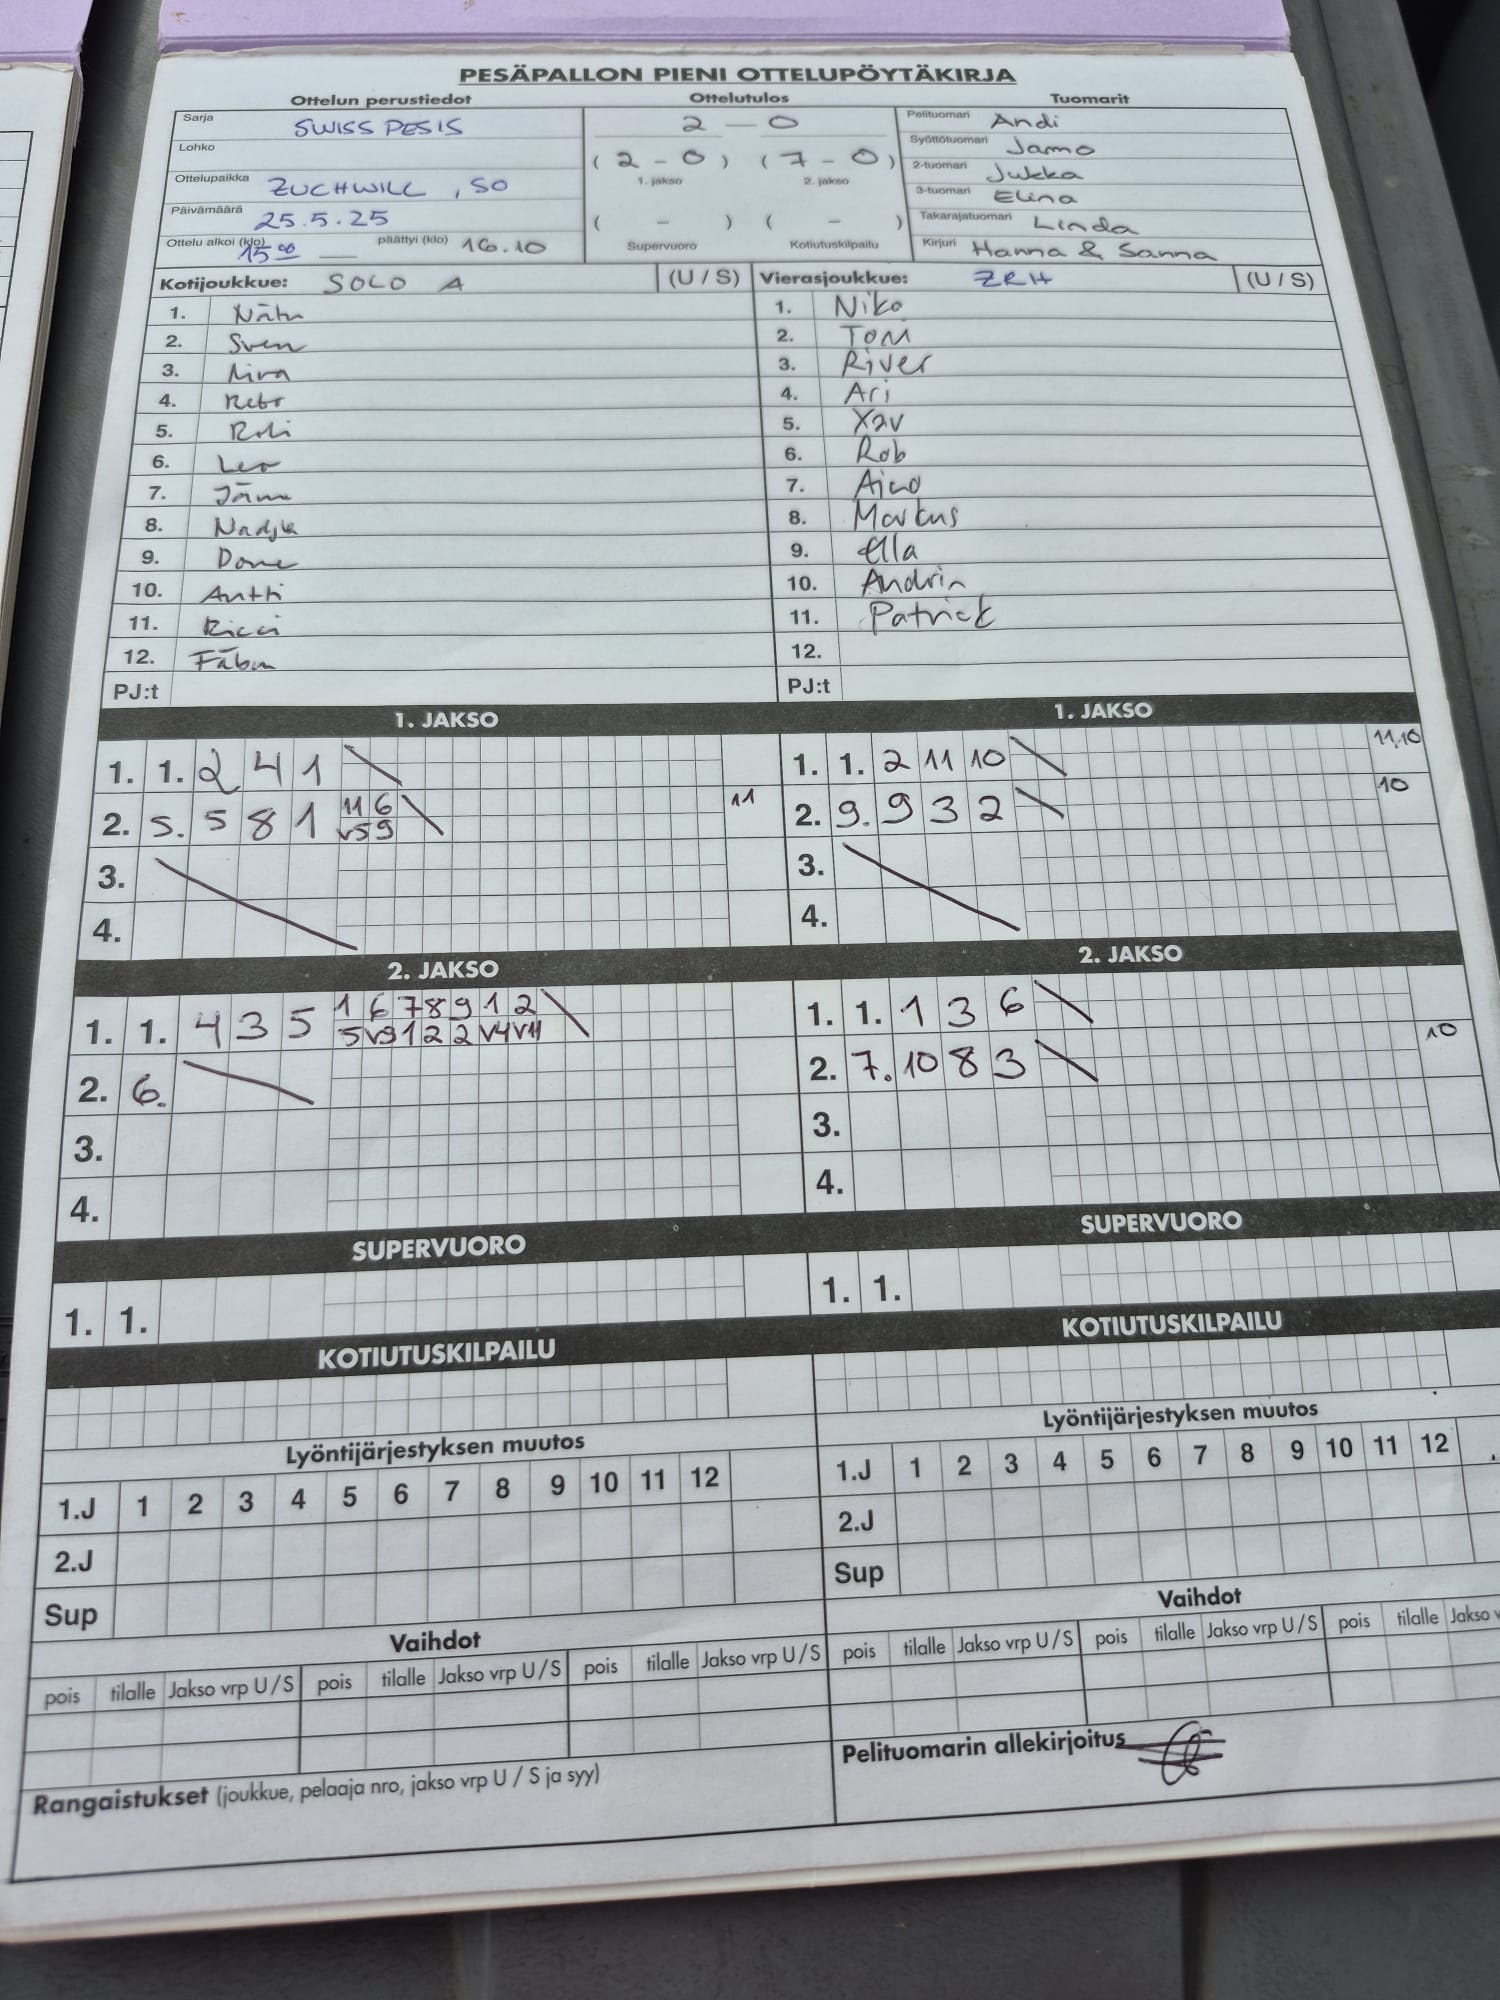 PESÄPALLON PIENI OTTELUPÖYTÄKIRJA
Ottelun perustiedot
Sarja SWISS PESIS
Lohko
Ottelupaikka ZUCHWILL, SO
Päivämäärä 25.5.25
Ottelu alkoi (klo) 15 00 — päättyi (klo) 16.10
Ottelutulos
2 — 0
(2 - 0) (7 - 0)
1. jakso 2. jakso
( - ) ( - )
Supervuoro Kotiutuskilpailu
Tuomarit
Pelituomari Andi
Syöttötuomari Jarno
2-tuomari Jukka
3-tuomari Elina
Takarajatuomari Linda
Kirjuri Hanna & Sanna
Kotijoukkue: SOLO A (U / S)
1. Nätu
2. Sven
3.
4. Reto
5. Roli
6. Leo
7.
8. Nadja
9. Dome
10. Antti
11. Ricci
12. Fäbu
PJ:t
Vierasjoukkue: ZRH (U / S)
1. Niko
2. Tomi
3. River
4. Ari
5. Xav
6. Rob
7. Aino
8. Markus
9. Ella
10. Andrin
11. Patrick
12.
PJ:t
1. JAKSO
1. 1. 2 4 1
2. 5. 5 8 1 11 6 11
v5 9
3.
4.
1. JAKSO
1. 1. 2 11 10 11,10
2. 9. 9 3 2 10
3.
4.
2. JAKSO
1. 1. 4 3 5 1 6 7 8 9 1 2
5 v9 1 2 2 v4 v11
2. 6.
3.
4.
2. JAKSO
1. 1. 1 3 6
2. 7. 10 8 3 10
3.
4.
SUPERVUORO
1. 1.
SUPERVUORO
1. 1.
KOTIUTUSKILPAILU
KOTIUTUSKILPAILU
Lyöntijärjestyksen muutos
1.J 1 2 3 4 5 6 7 8 9 10 11 12
2.J
Sup
Lyöntijärjestyksen muutos
1.J 1 2 3 4 5 6 7 8 9 10 11 12
2.J
Sup
Vaihdot
pois tilalle Jakso vrp U / S pois tilalle Jakso vrp U / S pois tilalle Jakso vrp U / S
Vaihdot
pois tilalle Jakso vrp U / S pois tilalle Jakso vrp U / S pois tilalle Jakso v
Rangaistukset (joukkue, pelaaja nro, jakso vrp U / S ja syy)
Pelituomarin allekirjoitus